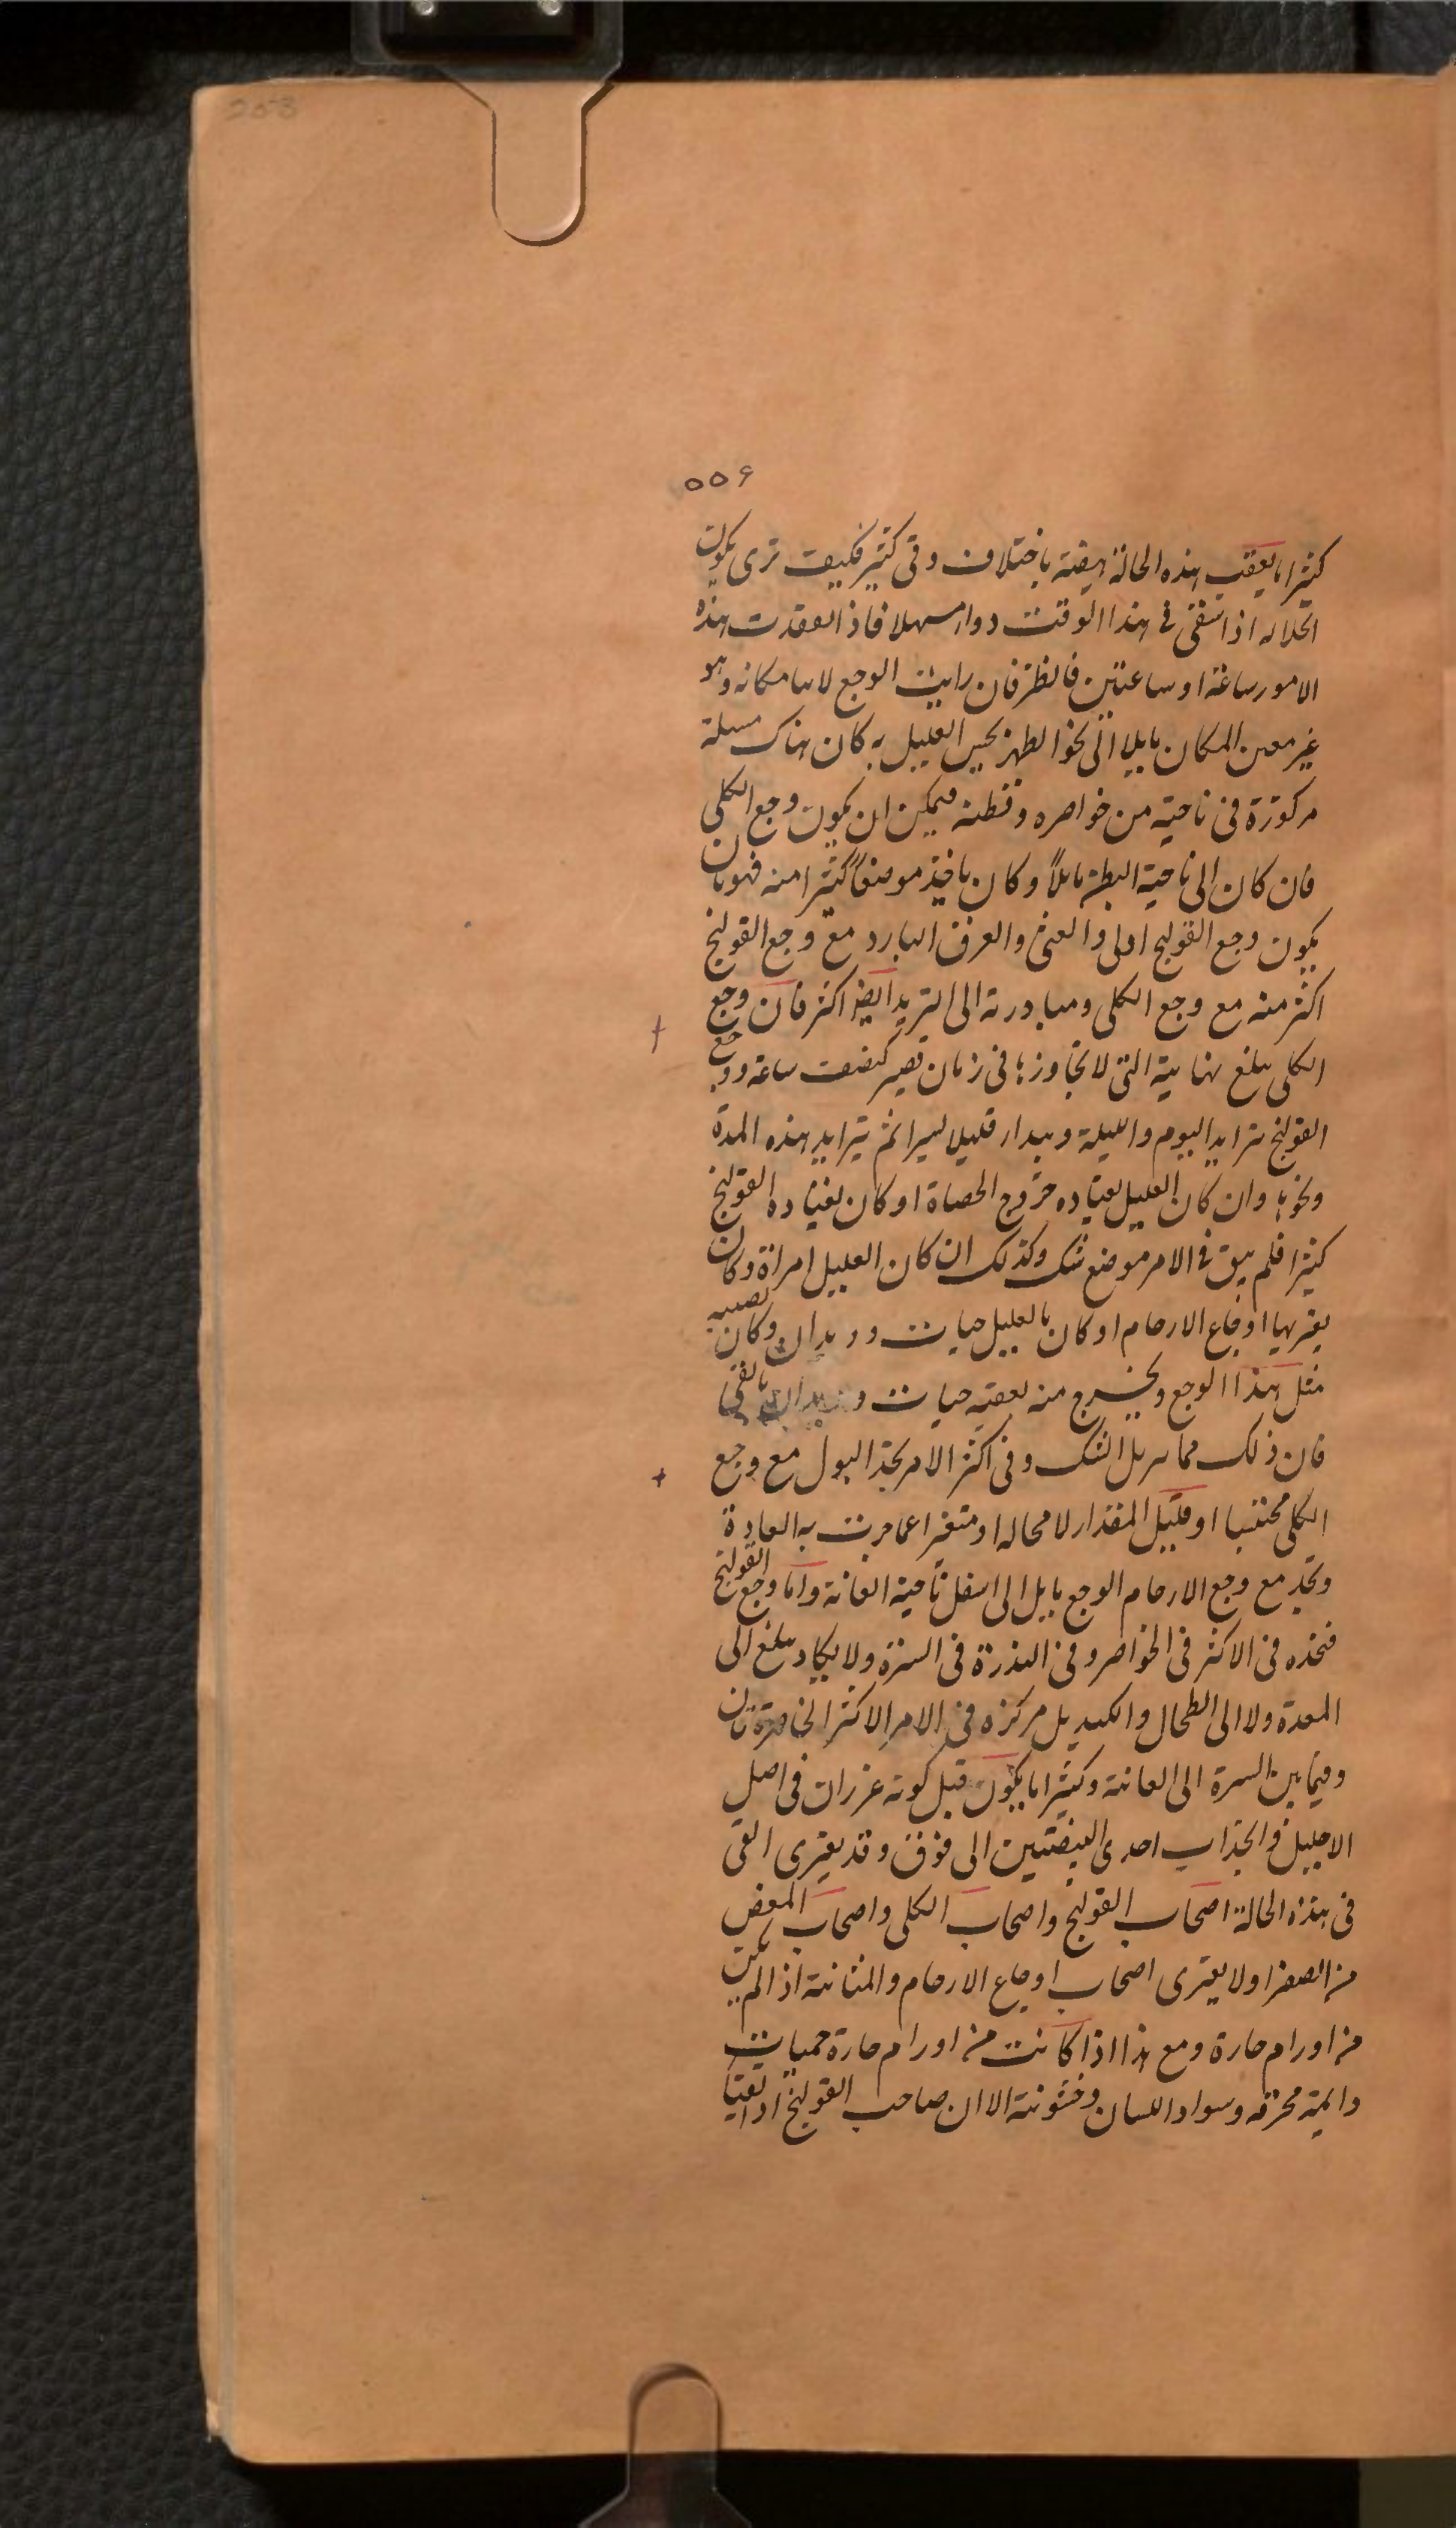 203
٥٥٦
كثيرا ما يعقب هذه الحالة هيضة باختلاف وقى كثير فكيف ترى يكون
انحلاله اذا سقى فى هذا الوقت دواء مسهلا فاذا انعقدت هذه
الامور ساعة او ساعتين فانظر فان رايت الوجع لابثا مكانه وهو
غير معين المكان مايلا الى نحو الظهر يحس العليل به كان هناك مسلة
مركوزة فى ناحية من خواصره وقطنه فيمكن ان يكون وجع الكلى
فان كان الى ناحية البطن مايلا وكان ياخذ موضعا كثيرا منه فهو بان
يكون وجع القولنج اولى والغثى والعرق البارد مع وجع القولنج
اكثر منه مع وجع الكلى ومبادرته الى التزيد ايضا اكثر فان وجع
الكلى يبلغ نهايته التى لا يتجاوزها فى زمان قصير كنصف ساعة ووجع
القولنج يتزايد اليوم والليلة ويبدا قليلا يسيرا ثم يتزايد هذه المدة
ونحوها وان كان العليل يعتاده خروج الحصاة او كان يعتاده القولنج
كثيرا فلم يبق فى الامر موضع شك وكذلك ان كان العليل امراة وكان
يعتريها اوجاع الارحام او كان بالعليل حيات وديدان وكان يصيبه
مثل هذا الوجع ويخرج منه بعقبه حيات وديدان بالقى
فان ذلك مما يزيل الشك وفى اكثر الامر يجد البول مع وجع
الكلى محتبسا او قليل المقدار لا محاله او متغيرا عما جرت به العادة
وتجد مع وجع الارحام الوجع مايل الى اسفل ناحية العانة واما وجع القولنج
فتجده فى الاكثر فى الخواصر وفى الندرة فى السرة ولا يكاد يبلغ الى
المعدة ولا الى الطحال والكبد بل مركزه فى الامر الاكثر الخاصرتان
وفيما بين السرة الى العانة وكثيرا ما يكون قبل كونه غرزان فى اصل
الاحليل وانجذاب احدى البيضتين الى فوق وقد يعترى القى
فى هذه الحالة اصحاب القولنج واصحاب الكلى واصحاب المغص
من الصفرا ولا يعترى اصحاب اوجاع الارحام والمثانة اذا لم يكن
من اورام حارة ومع هذا اذا كانت من اورام حارة حميات
دايمة محرقه وسواد اللسان وخشونته الا ان صاحب القولنج اذا تقيا